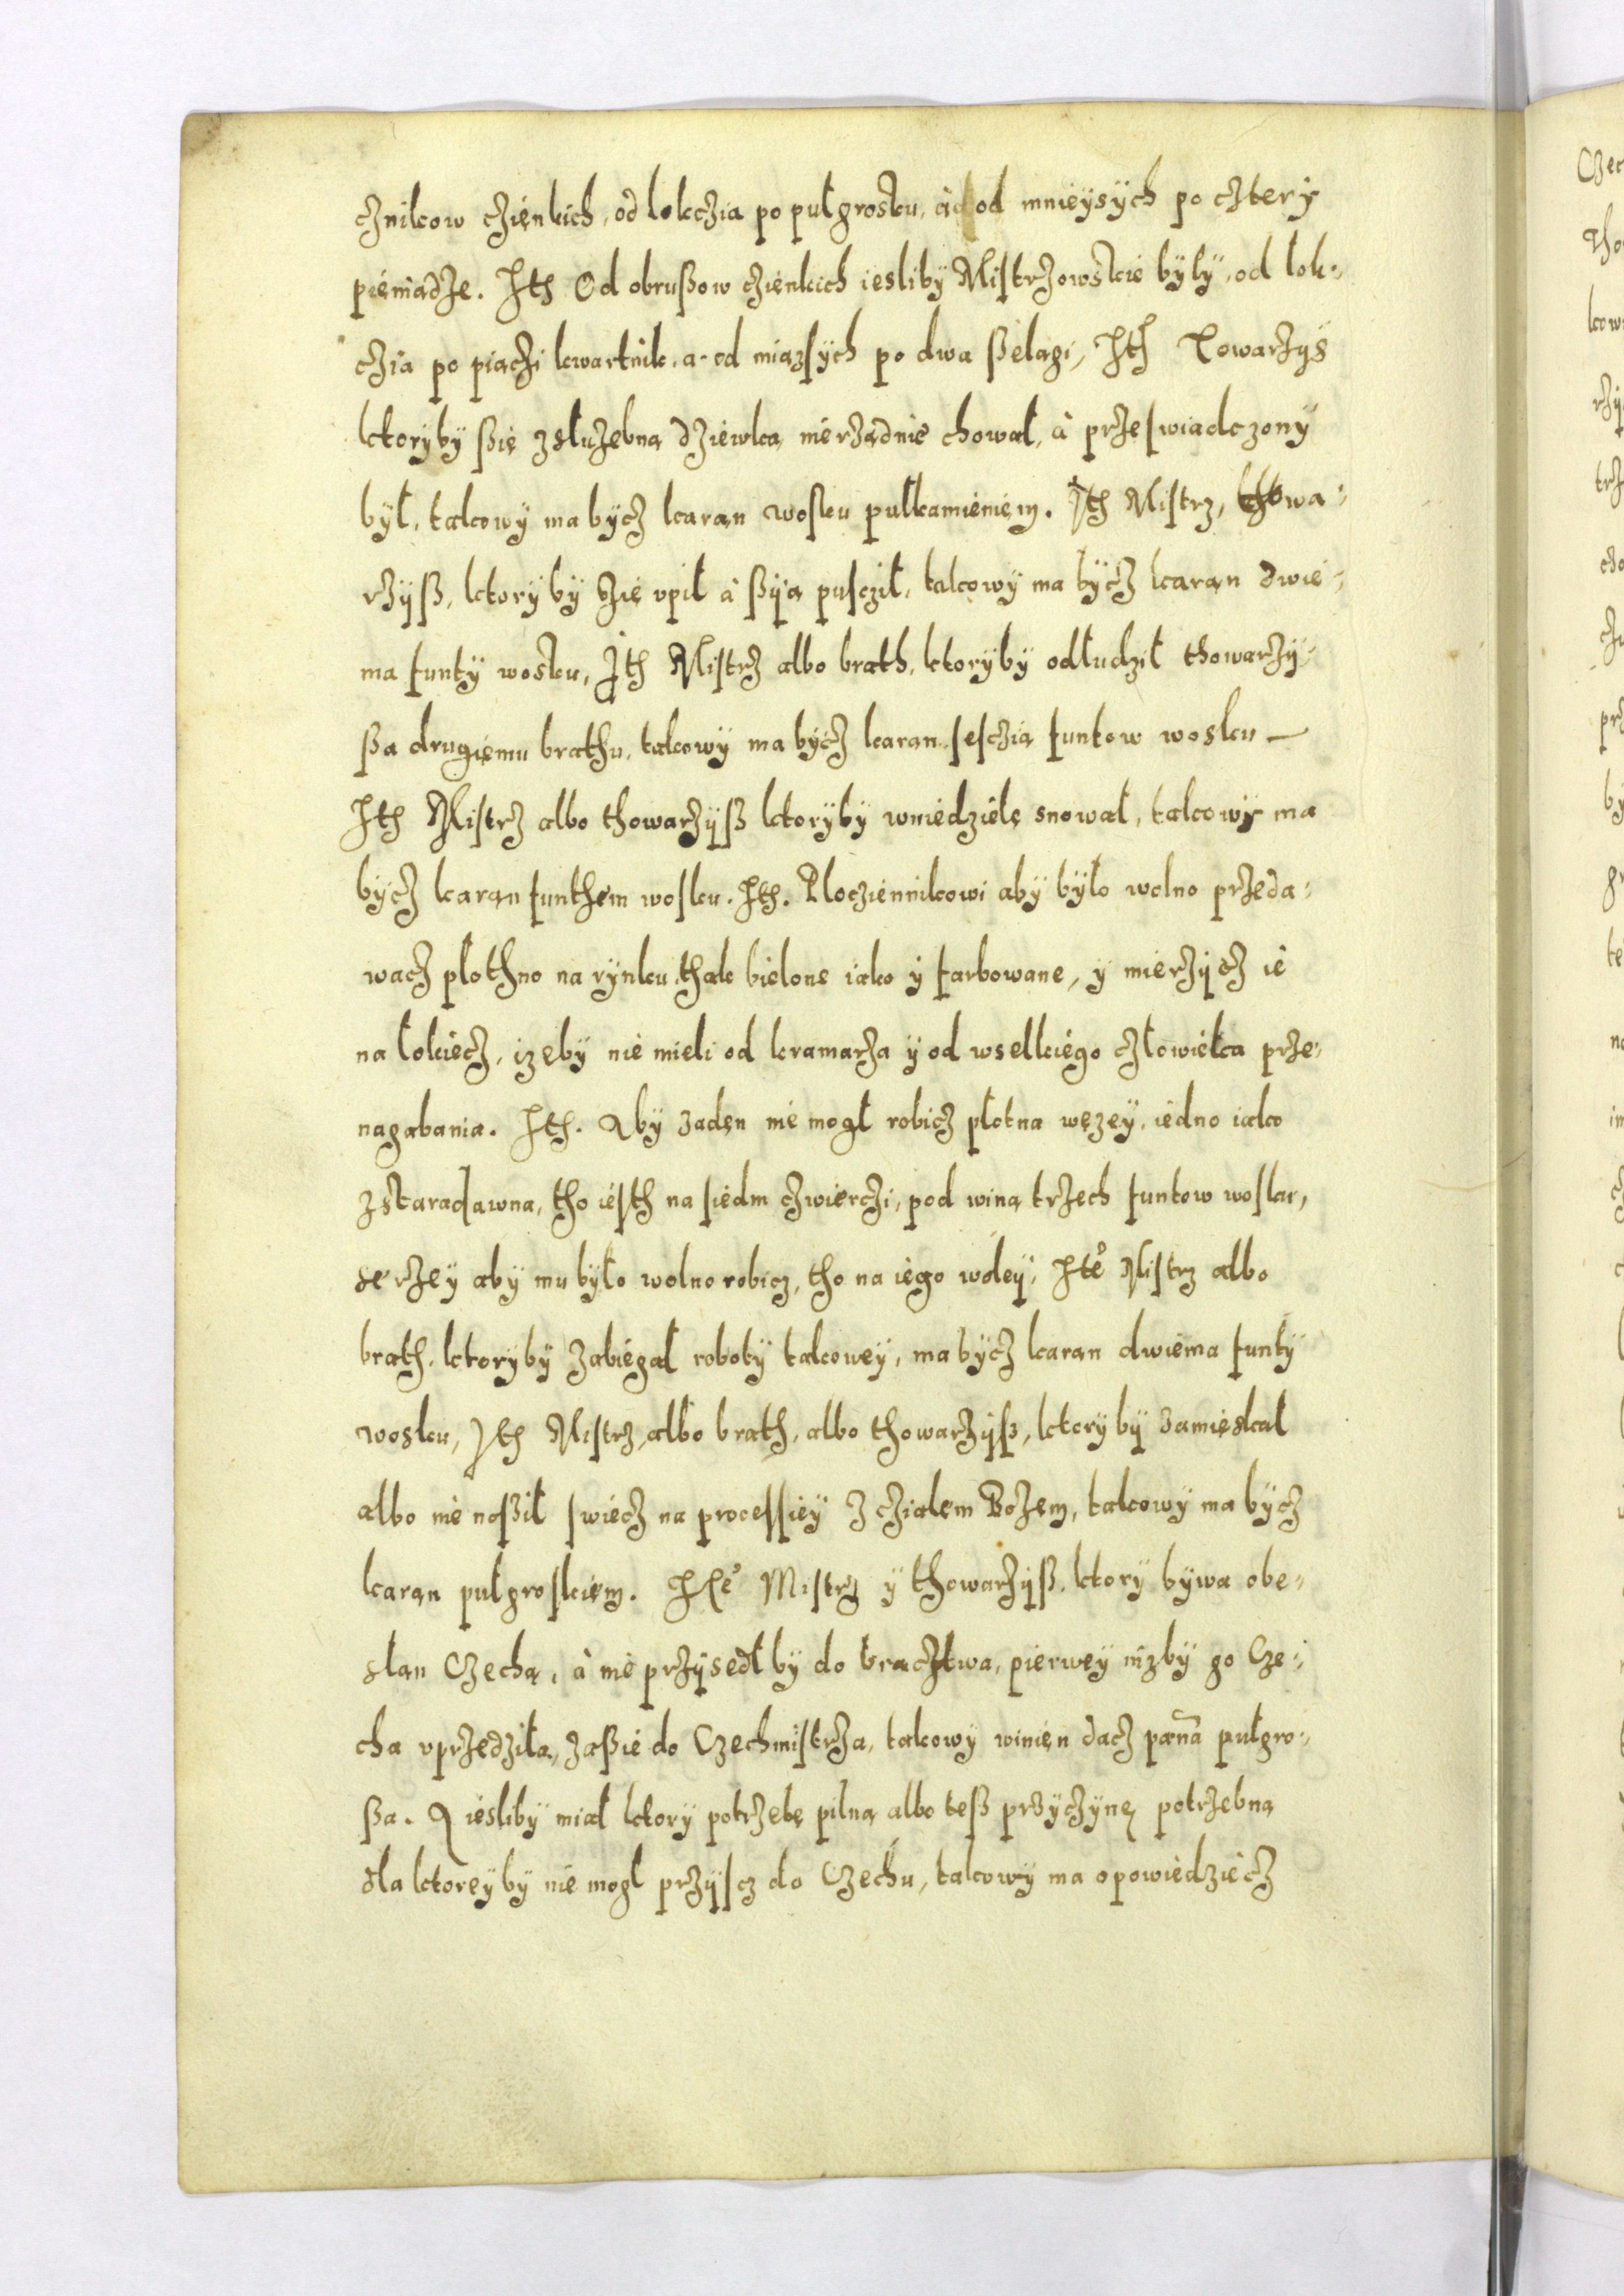 cznikow czięnkich, od lokczia po pułgrosku, á od mnieysych po cztery
pieniądze. Ith Od obrußow czienkich iesliby Mistrzowskie były, od lok-
czia po piączi kwartnik, a od miązsych po dwa ßelągi, Ith Towarzys
ktoryby ßię zsłużebną dziewką nierządnie chował, á przeswiadczony
był, takowy ma bycz karan wosku pułkamieniem. Ith Mistrz, thowa-
rzyß, ktoryby się vpił á ßyią puscził, takowy ma bycz karan dwie-
ma funty wosku, Ith Mistrz albo brath, ktoryby odłudził thowarzy-
ßa drugiemu brathu, takowy ma bycz karan sesczią funtow wosku —
Ith Mistrz albo thowarzyß ktoryby wniedzielę snował, takowy ma
bycz karan funthem wosku. Ith. Plocziennikowi aby było wolno przeda-
wacz płothno na rynku, thak bielone iako y farbowane, y mierzycz ie
na łokiecz, izęby nie mieli od kramarza y od wselkiego człowieka prze-
nagabania. Ith. Aby zadęn nie mogł robicz płotna węzey, iedno iako
zstaradawna, tho iesth na siedm czwierczi, pod winą trzech funtow wosku,
serzey aby mu było wolno robicz, tho na iego woley. Ite Mistrz albo
brath, ktoryby zabiegał roboty takowey, ma bycz karan dwiema funty
wosku, Ith Mistrz, albo brath, albo thowarzyß, ktoryby zamięskał
albo nie noßił swiecz na processiey z cziałem Bozem, takowy ma bycz
karan pułgroskiem. Ite Mistrz y thowarzyß, ktory bywa obe-
słan Czechą, á nie przysedłby do bracztwa, pierwey nizby go Cze-
cha vprzedziła, zaßie do Czechmistrza, takowy winien dacz pæna pułgro-
ßa. A iesliby miał ktory potrzebę pilną albo teß przyczynę potrzebną
dla ktoreyby nie mogł przyscz do Czechu, takowy ma opowiedziecz